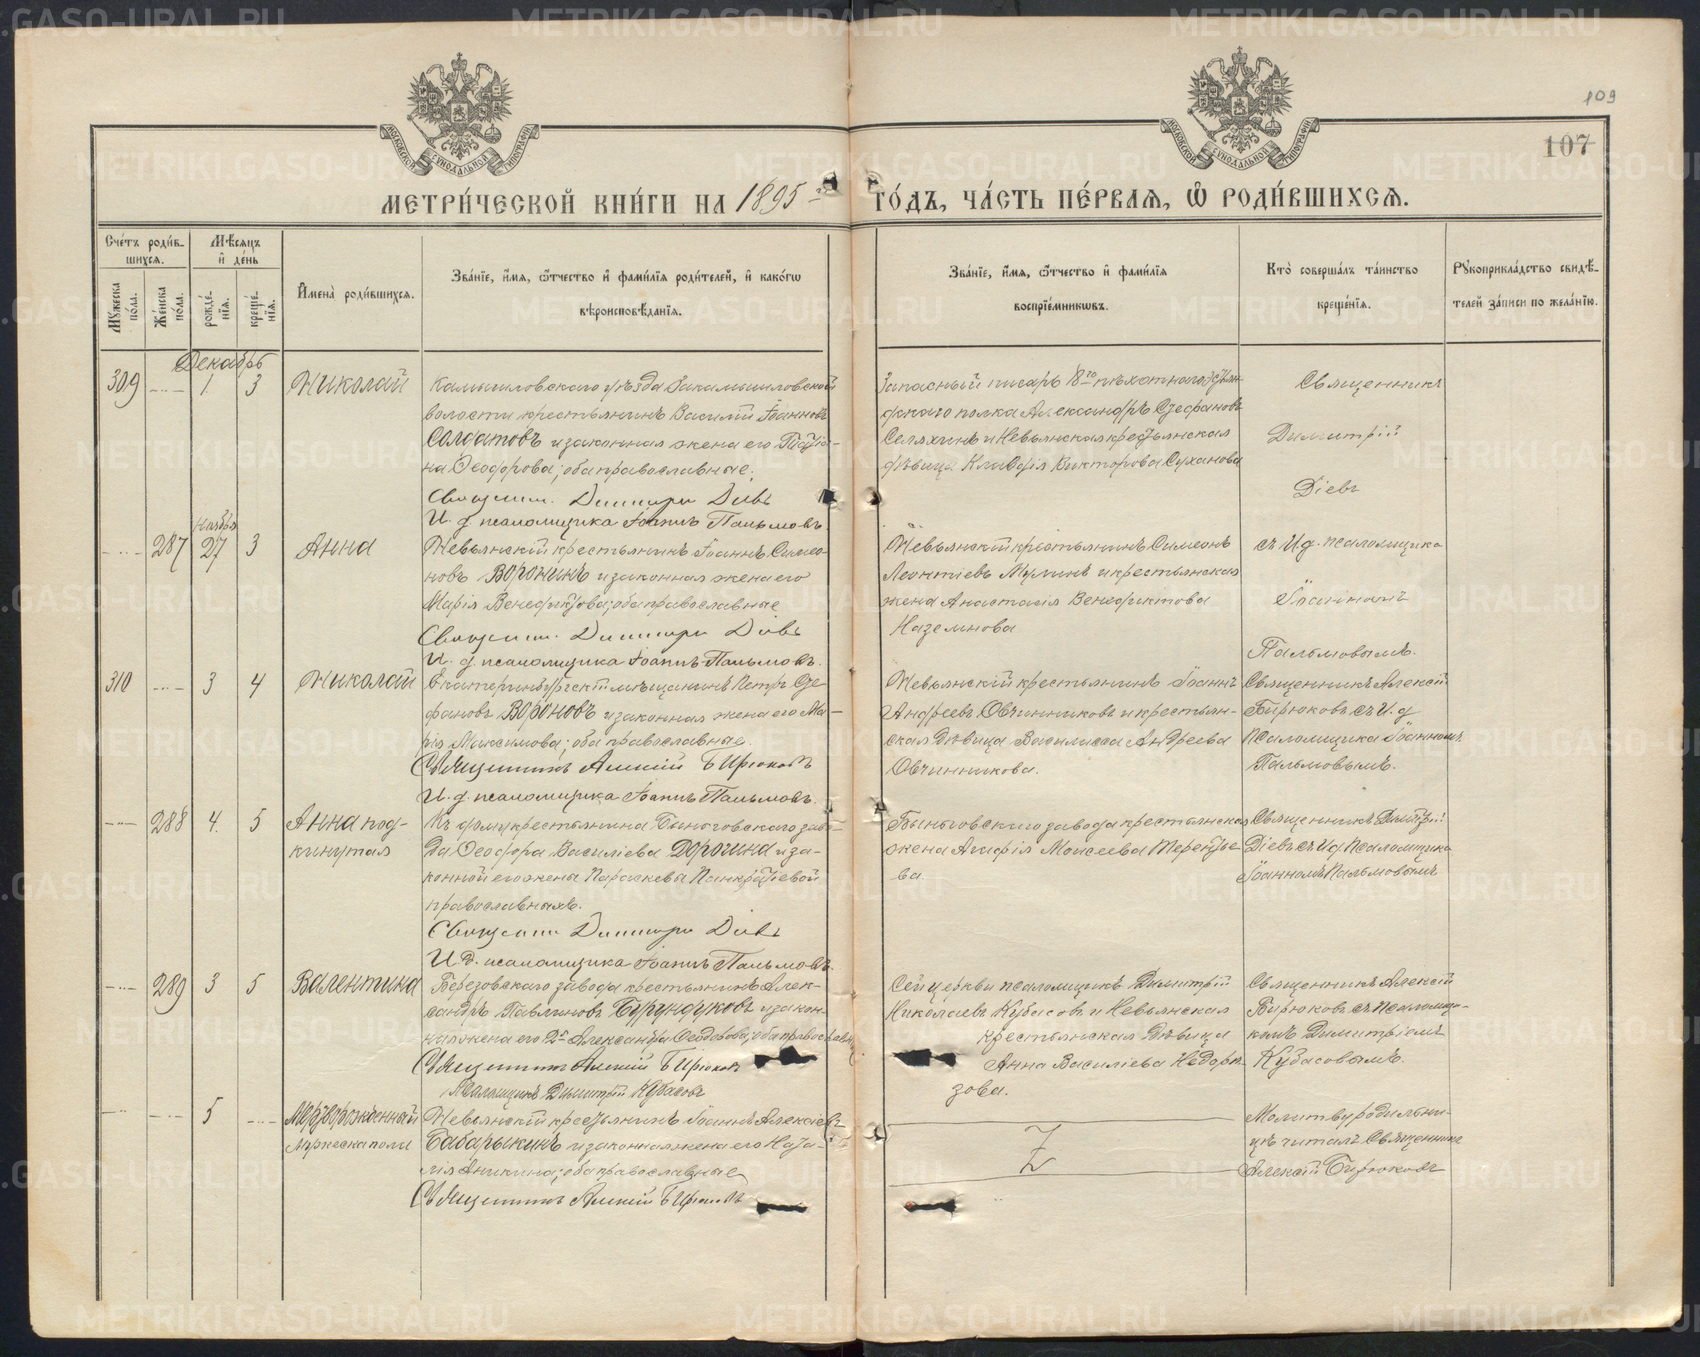 109
107
МЕТРИ́ЧЕСКОЙ КНИ́ГИ НА 1895 ГО́ДЪ, ЧА́СТЬ ПЕ́РВАЯ, Ѡ РОДИ́ВШИХСЯ.
Сче́тъ роди́в-
шихся.
Мѣ́сяцъ
и҆ де́нь
Мꙋ́жеска
по́ла.
Же́нска
по́ла.
рожде́-
нїя.
креще́-
нїя.
И҆мена̀ роди́вшихся.
Зва́нїе, и҆́мя, ѻ҆́тчество и҆ фами́лїя роди́телей, и҆ како́гѡ
вѣроисповѣ́данїя.
Зва́нїе, и҆́мя, ѻ҆́тчество и҆ фами́лїя
воспрїе́мникѡвъ.
Кто̀ соверша́лъ та́инство
креще́нїя.
Рꙋкоприкла́дство свидѣ́-
телей за́писи по жела́нїю.
Декабрь
309 1. 3 Николай
Камышловскаго уѣзда Закамышловской
волости крестьянинъ Василій Іоанновъ
Солдатовъ и законная жена его Татіа-
на Ѳеодорова; оба православные.
Священ. Димитрій Діевъ
И. д. псаломщика Іоаннъ Пальмовъ.
Запасный писарь 18го пѣхотнаго
полка Александръ Стефановъ
Селяхинъ и Невьянская крестьянская
дѣвица Клавдія Викторова Суханова
Священникъ
Димитрій
Діевъ
Ноября
287 27 3 Анна
Невьянскій крестьянинъ Іоаннъ Симео-
новъ Воронинъ и законная жена его
Марія Венедиктова; оба православные
Священ. Димитрій Діевъ
И. д. псаломщика Іоаннъ Пальмовъ.
Невьянскій крестьянинъ Симеонъ
Леонтіевъ и крестьянская
жена Анастасія Венедиктова
Наземнова
съ И. д. псаломщика
Іоанномъ
Пальмовымъ.
310 3 4 Николай
Екатеринбургскій мѣщанинъ Петръ Сте-
фановъ Вороновъ и законная жена его Ма-
рія Максимова; оба православные.
Священникъ Алексій Бирюковъ
И. д. псаломщика Іоаннъ Пальмовъ.
Невьянскій крестьянинъ Іоаннъ
Андреевъ Овчинниковъ и крестьян-
ская дѣвица Василисса Андреева
Овчинникова.
Священникъ Алексій
Бирюковъ съ И. д
псаломщика Іоанномъ
Пальмовымъ.
288 4. 5 Анна под-
кинутая
Къ дому крестьянина Быньговскаго заво-
да Ѳеодора Василіева Дорохина и за-
конной его жены Параскевы Панкратіевой
православныхъ.
Священ. Димитрій Діевъ
И. д. псаломщика Іоаннъ Пальмовъ.
Быньговскаго завода крестьянская
жена Агафія Моисеева Терентье-
ва.
Священникъ Димитрій
Діевъ съ И. д. псаломщика
Іоанномъ Пальмовымъ
289 3 5 Валентина
Березовскаго завода крестьянинъ Алек-
сандръ Павлиновъ Бурундуковъ и закон-
ная жена его Александра Ѳеодорова; оба православн
Священникъ Алексій Бирюковъ
Псаломщикъ Димитрій Кубасовъ
Сей церкви псаломщикъ Димитрій
Николаевъ Кубасовъ и Невьянская
крестьянская дѣвица
Анна Василіева Недорѣ-
зова.
Священникъ Алексій
Бирюковъ съ псаломщи-
комъ Димитріемъ
Кубасовымъ.
5 Мертворожденный
мужеска пола
Невьянскій крестьянинъ Іоаннъ Алексіевъ
Бабарыкинъ и законная жена его Ната-
лія Аникина; оба православные
Священникъ Алексій Бирюковъ
Молитву родильни-
цѣ читалъ Священникъ
Алексій Бирюковъ
METRIKI.GASO-URAL.RU